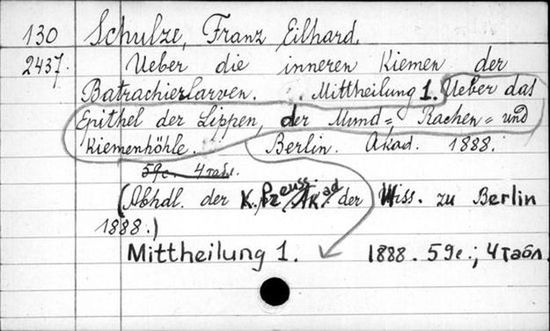 130 Schulze, Franz Eilhard.
2437. Ueber die inneren Kiemen der
Batrachierlarven. Mittheilung 1. Ueber das
Epithel der Lippen, der Mund= Rachen= und
Kiemenhöhle. Berlin. Akad. 1888.
59с. 4 табл.
(Abhdl. der K. Preuss. Akad. der Wiss. zu Berlin
1888.)
Mittheilung 1. 1888. 59с.; 4 табл.